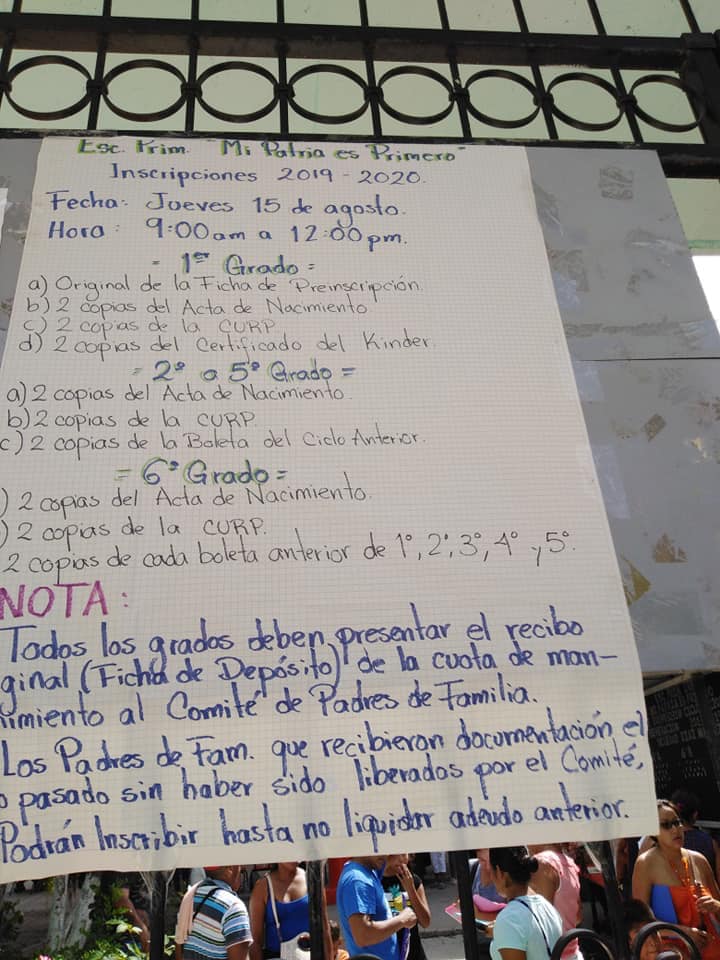 Esc. Prim. "Mi Patria es Primero"
Inscripciones 2019-2020.
Fecha: Jueves 15 de agosto.
Hora: 9:00am a 12:00pm.
= 1er Grado =
a) Original de la Ficha de Preinscripción.
b) 2 copias del Acta de Nacimiento.
c) 2 copias de la CURP
d) 2 copias del Certificado del Kinder.
= 2° a 5° Grado =
a) 2 copias del Acta de Nacimiento.
b) 2 copias de la CURP.
c) 2 copias de la Boleta del Ciclo Anterior.
= 6° Grado =
) 2 copias del Acta de Nacimiento.
) 2 copias de la CURP.
2 copias de cada boleta anterior de 1°, 2°, 3°, 4° y 5°.
NOTA:
Todos los grados deben presentar el recibo
ginal (Ficha de Depósito) de la cuota de man-
imiento al Comité de Padres de Familia.
Los Padres de Fam. que recibieron documentación el
o pasado sin haber sido liberados por el Comité,
Podrán Inscribir hasta no liquidar adeudo anterior.